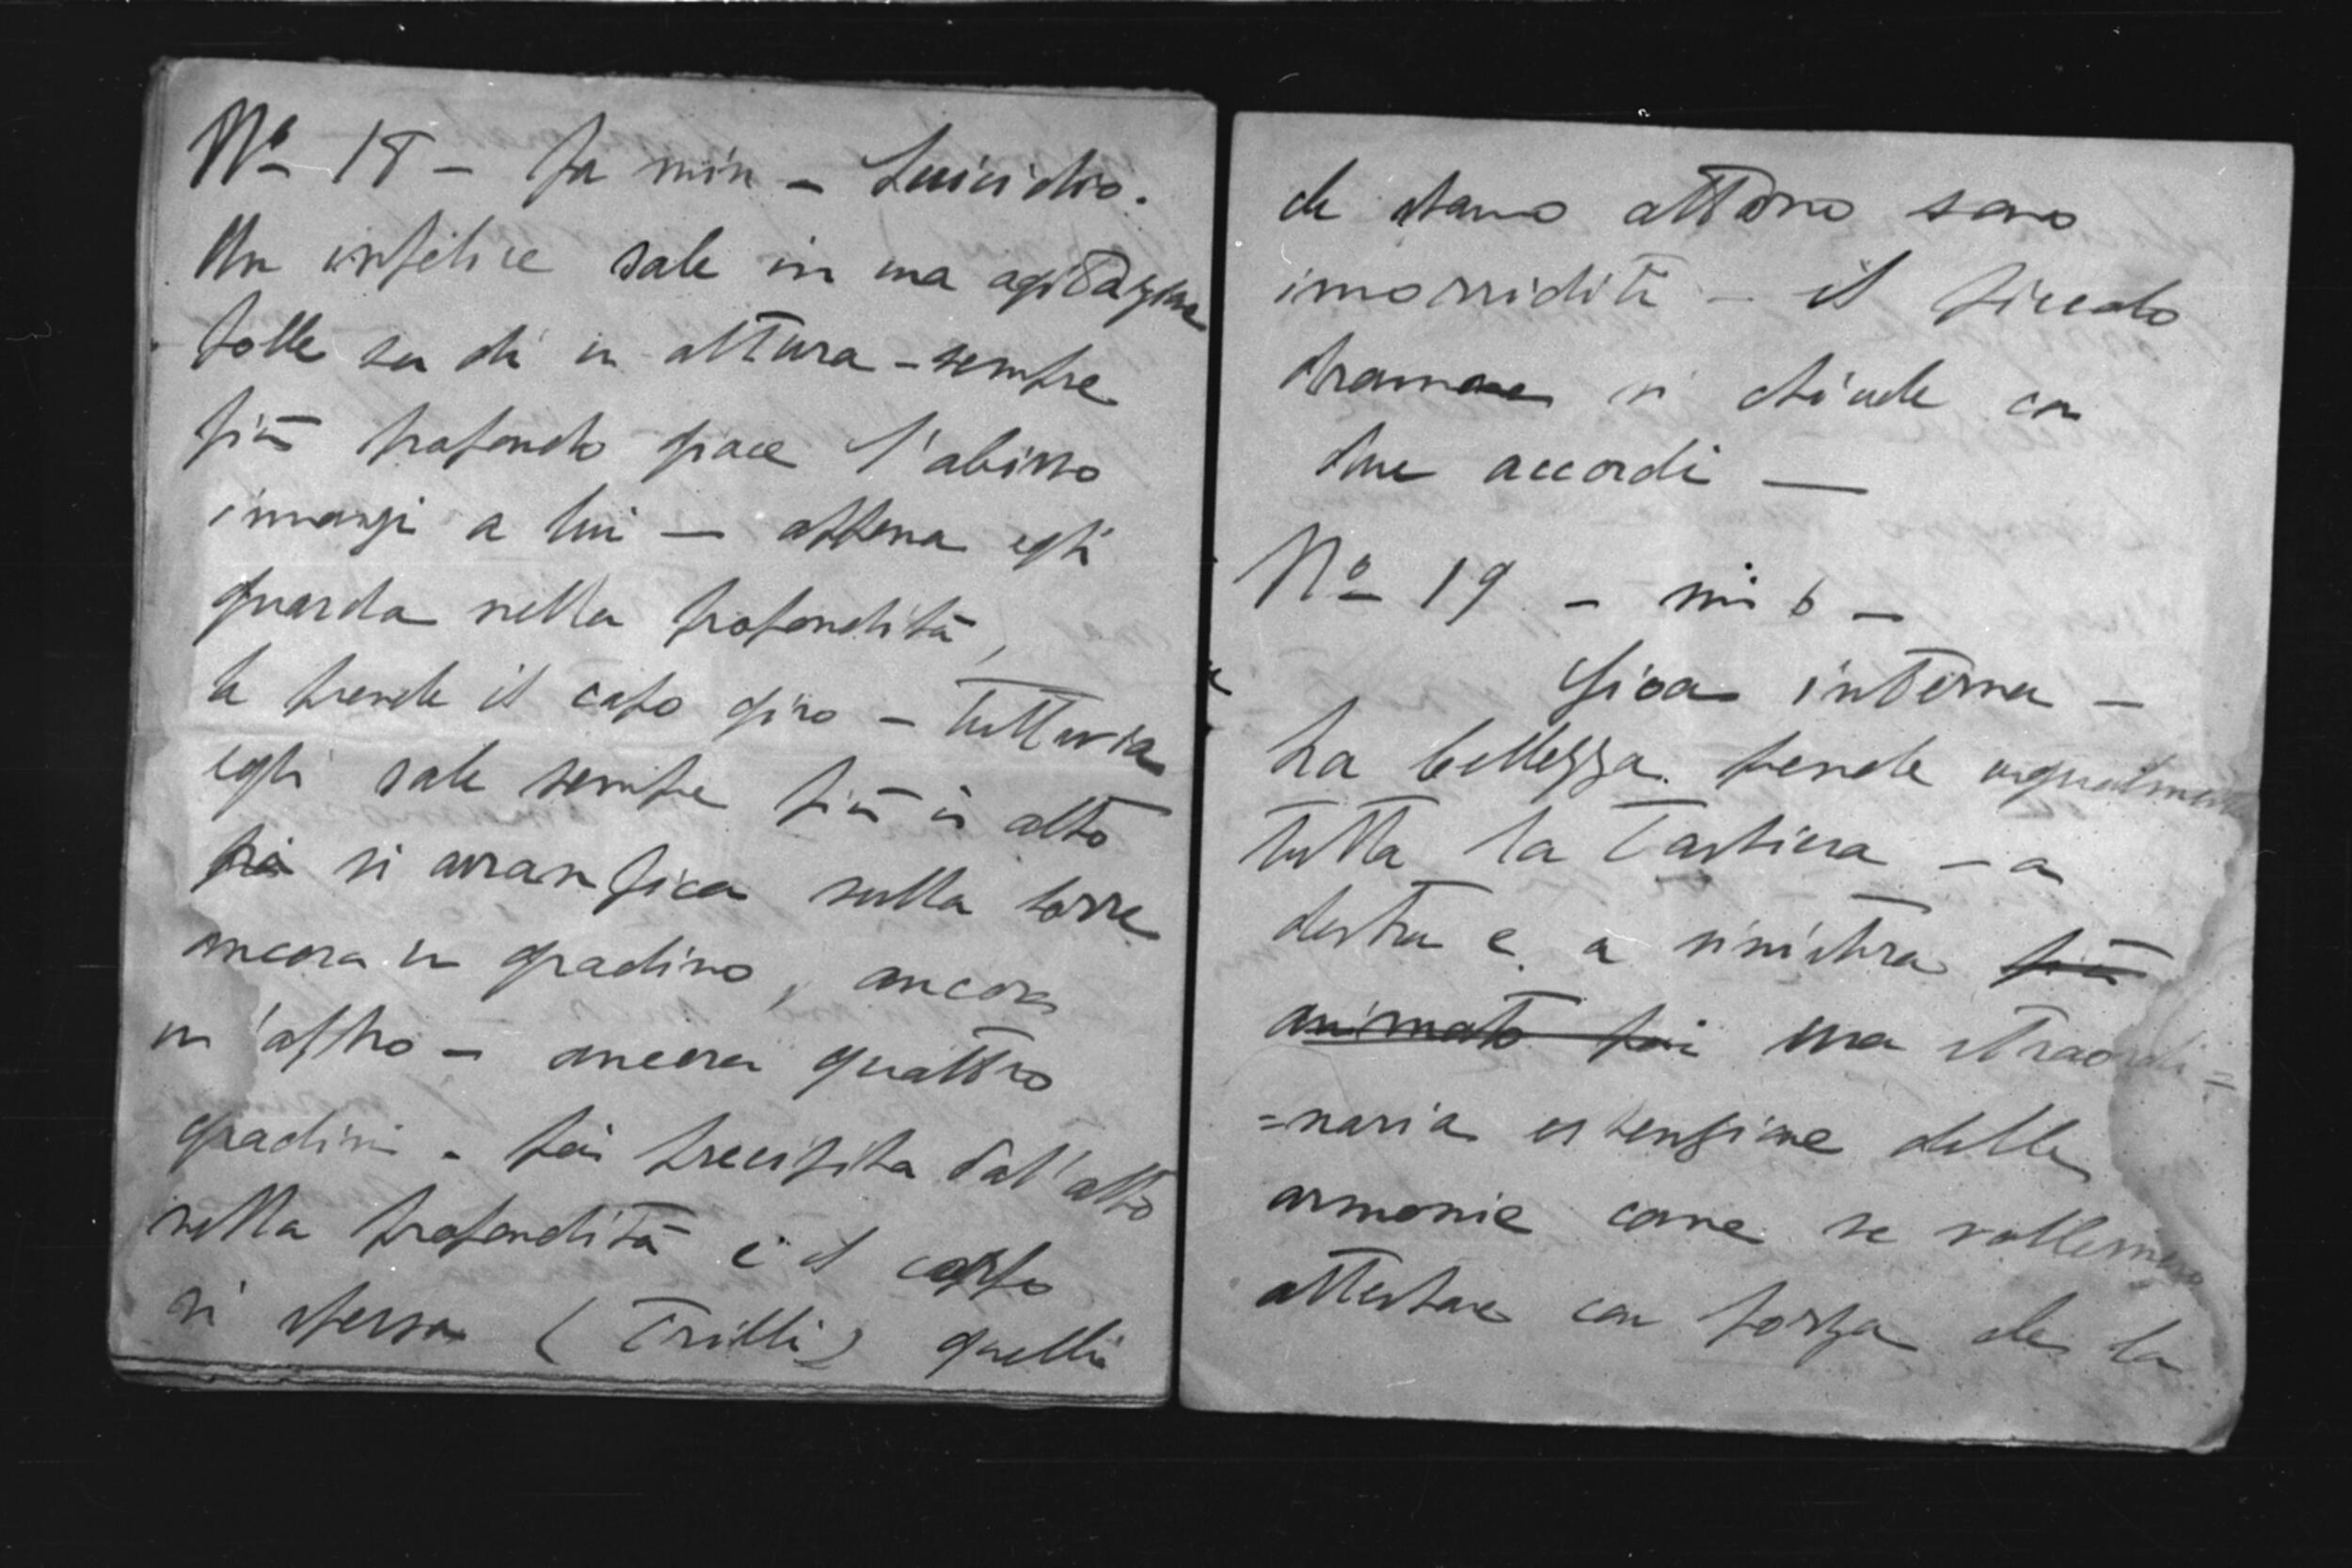 No 18 - fa min - Suicidio.
Un infelice sale in una agitazione
folle su di un altura - sempre
più profondo giace l'abisso
innanzi a lui - appena egli
guarda nella profondità,
le prende il capo giro - Tuttavia
egli sale sempre più in alto
poi si arrampica sulla torre
ancora un gradino, ancora
un'altro - ancora quattro
gradini - poi precipita dall'alto
nella profondità e il corpo
si sferra (Trilli) quelli
che stanno attorno sono
inorriditi - il piccolo
dramma si chiude con
due accordi —
No 19 - mi b -
Gioa interna -
La bellezza prende ugualmente
tutta la Tastiera - a
destra e a sinistra più
animato poi una straordi=
=naria estensione delle
armonie come se volessero
attestare con forza che la